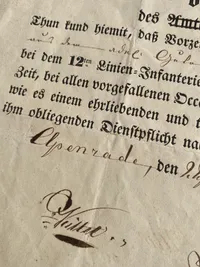 des Amts
Thun kund hiemit, daß Vorze
aus dem adel. Gute
bei dem 12ten Linien-Infanterie
Zeit, bei allen vorgefallenen Occ
wie es einem ehrliebenden und t
ihm obliegenden Dienstpflicht na
Apenrade, den